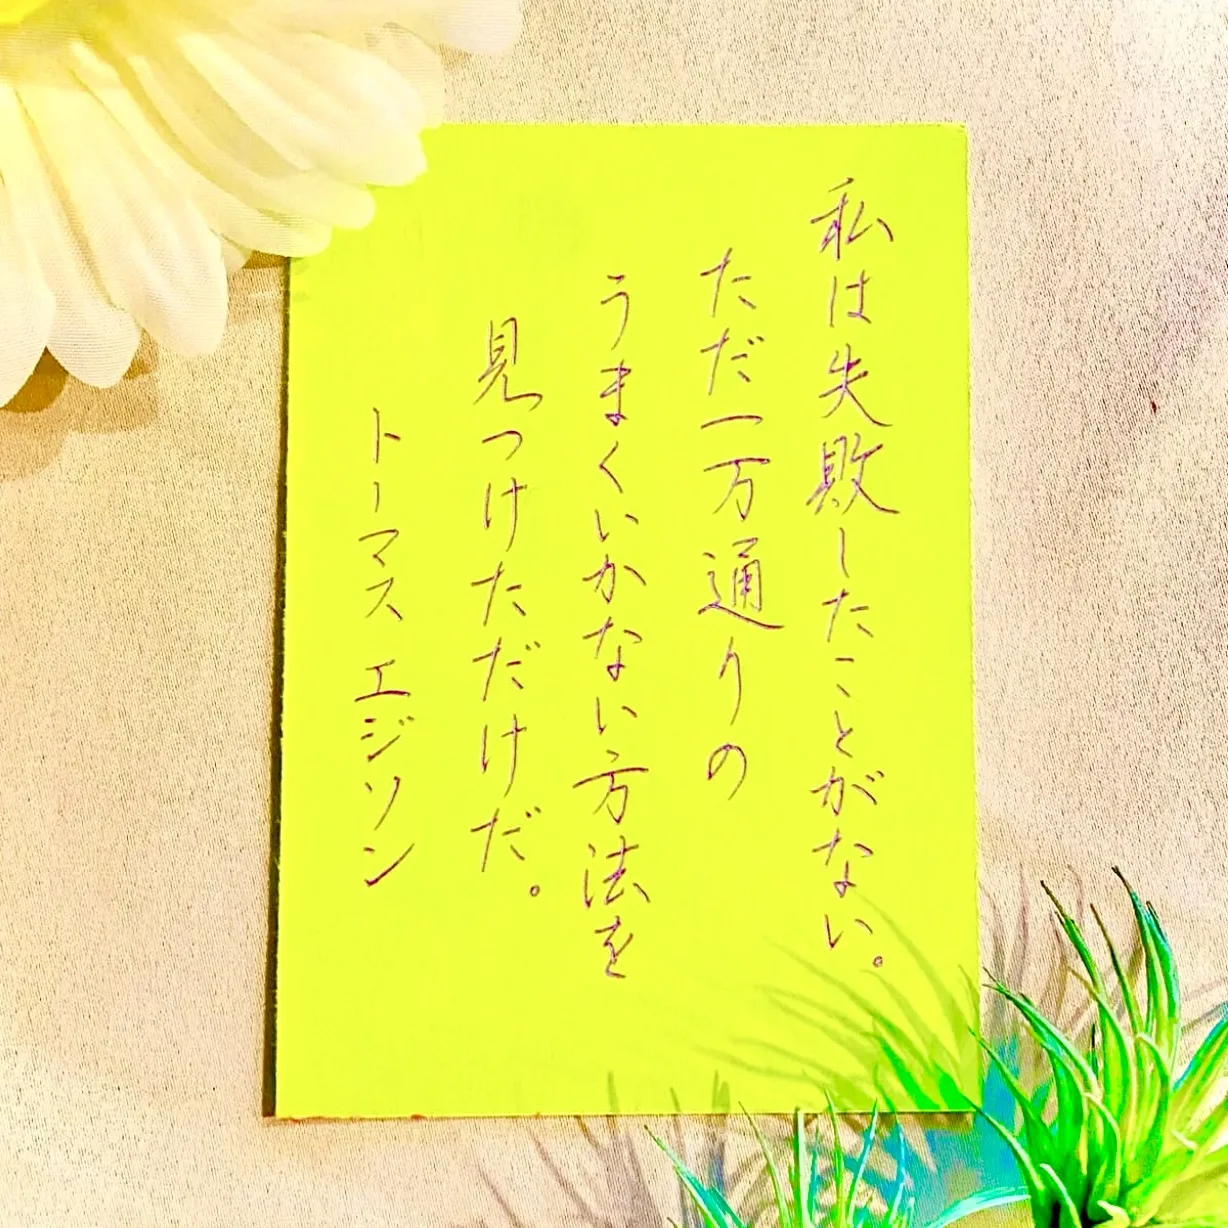 私は失敗したことがない。
ただ一万通りの
うまくいかない方法を
見つけただけだ。
トーマス エジソン